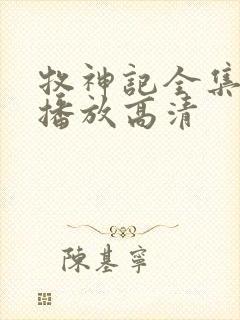 牧神記全集
播放高清
陳基寧